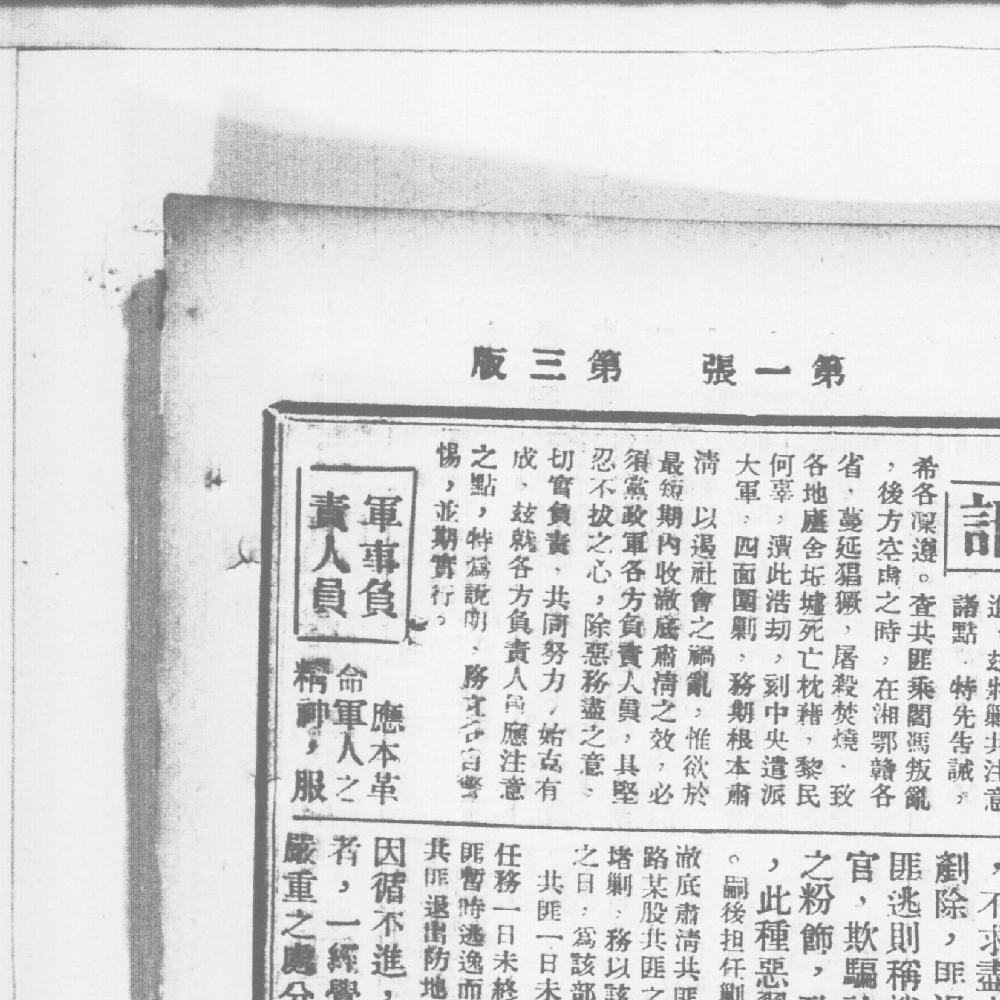 第一張
第三版
諸點，特先告誡，
希各凜遵。查共匪乘閻馮叛亂
，後方空虛之時，在湘鄂贛各
省，蔓延猖獗，屠殺焚燒，致
各地廬舍坵墟死亡枕藉，黎民
何辜，瀆此浩劫，刻中央遣派
大軍，四面圍剿，務期根本肅
清，以遏社會之禍亂，惟欲於
最短期內收澈底肅清之效，必
須黨政軍各方負責人員，具堅
忍不拔之心，除惡務盡之意，
切實負責，共同努力，始克有
成，茲就各方負責人員應注意
之點，特爲説明，務
惕，並期實行。
軍事負
責人員
應本革
命軍人之
精神，服
，不求盡
剷除，匪
匪逃則稱
官，欺騙
之粉飾，
，此種惡
。嗣後担任剿
澈底肅清共匪
路某股共匪之
堵剿，務以該
之日，爲該部
共匪一日未
任務一日未終
匪暫時逃逸而
共匪退出防地
因循不進，
者，一經覺
嚴重之處分